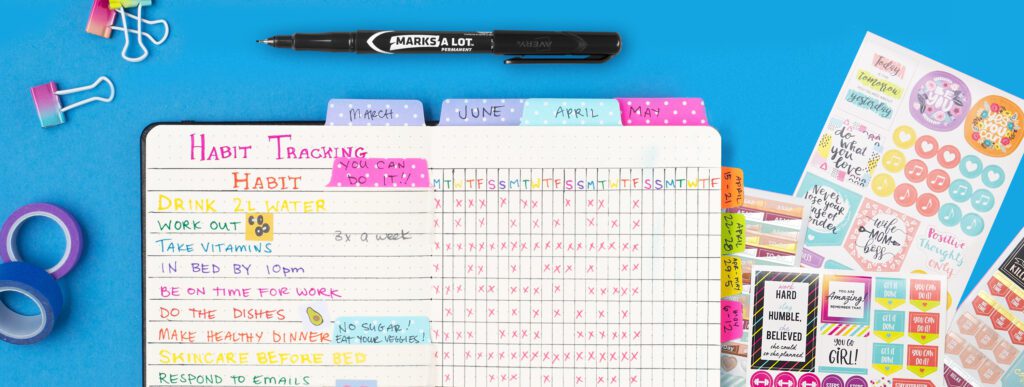 MARKS A LOT.
PERMANENT
AVERY
MARCH
JUNE
APRIL
MAY
HABIT TRACKING
YOU CAN
DO IT!!
HABIT
M T W T F S S M T W T F S S M T W T F S S M T W T F
DRINK 2L WATER
WORK OUT
3x a week
TAKE VITAMINS
IN BED BY 10pm
BE ON TIME FOR WORK
DO THE DISHES
MAKE HEALTHY DINNER
NO SUGAR!
EAT YOUR VEGGIES!
SKINCARE BEFORE BED
RESPOND TO EMAILS
APRIL
15-21
APRIL
22-28
29-5
6-12
Today
tomorrow
yesterday
do what
you love
Never
lose your
sense of
wonder
wife
MOM
boss
Positive
Thoughts
Only
work
HARD
stay
HUMBLE,
She
BELIEVED
she could
so she planned
YOU ARE
Amazing!
REMEMBER THAT.
YOU GO
GIRL!
GET IT
DONE!
YOU CAN
DO IT!
GET IT
DONE!
YOU CAN
DO IT!
GET IT
DONE!
YOU CAN
DO IT!